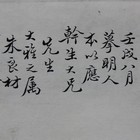 壬戌八月
摹明人
本以應
幹生大兄
先生
大雅之属
朱良材